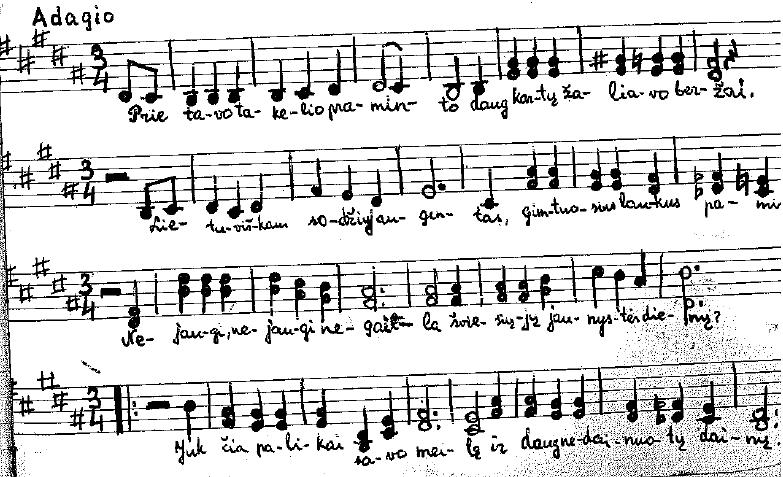 Adagio
3 4
Prie ta-vo ta-ke-lio pra-min-to daug kar-tų ža-lia-vo ber-žai.
3 4
Lie-tu-viš-kam so-džiuj au-gin-tas, gim-tuo-sius lau-kus pa-mi
3 4
Ne-jau-gi, ne-jau-gi ne-gaila švie-sių-jų jau-nys-tės die-nų?
3 4
Juk čia pa-li-kai sa-vo mei-lę ir daug ne-dai-nuo-tų dai-nų.